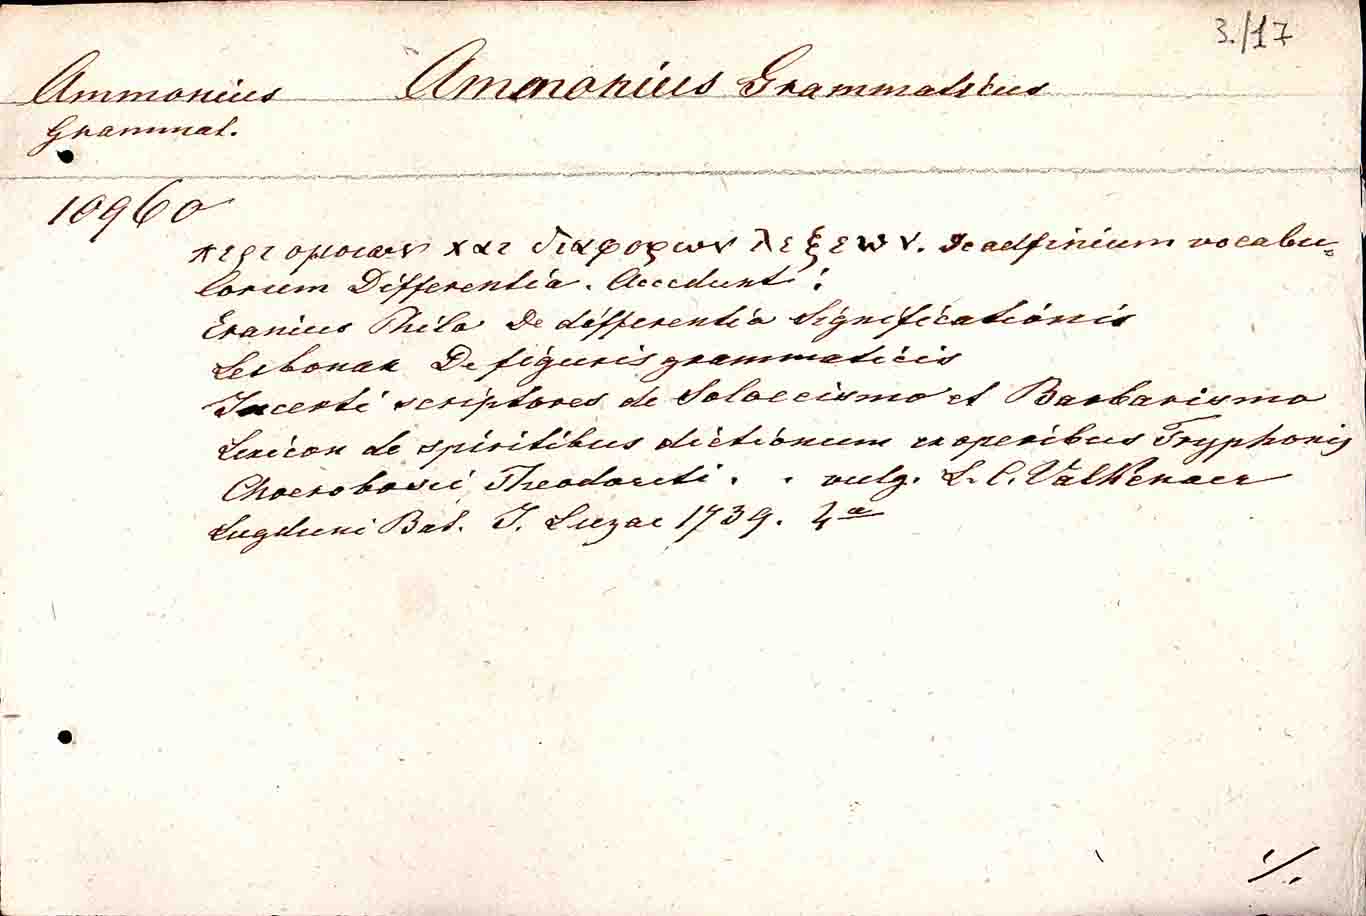 3./17
Ammonius Ammonius Grammaticus
Grammat.
10960
περι ομοιων και διαφορων λεξεων. De adfinium vocabu-
lorum Differentia. Accedunt:
Eranius Philo De differentia Significationis
Lesbonax De figuris grammaticis
Incerti scriptores de Soloecismo et Barbarismo
Lexicon de spiritibus dictionum ex operibus Tryphonis
Choerobosci Theodoreti. . vulg. L. C. Valkenaer
Lugduni Bat. J. Luzac 1739. 4º